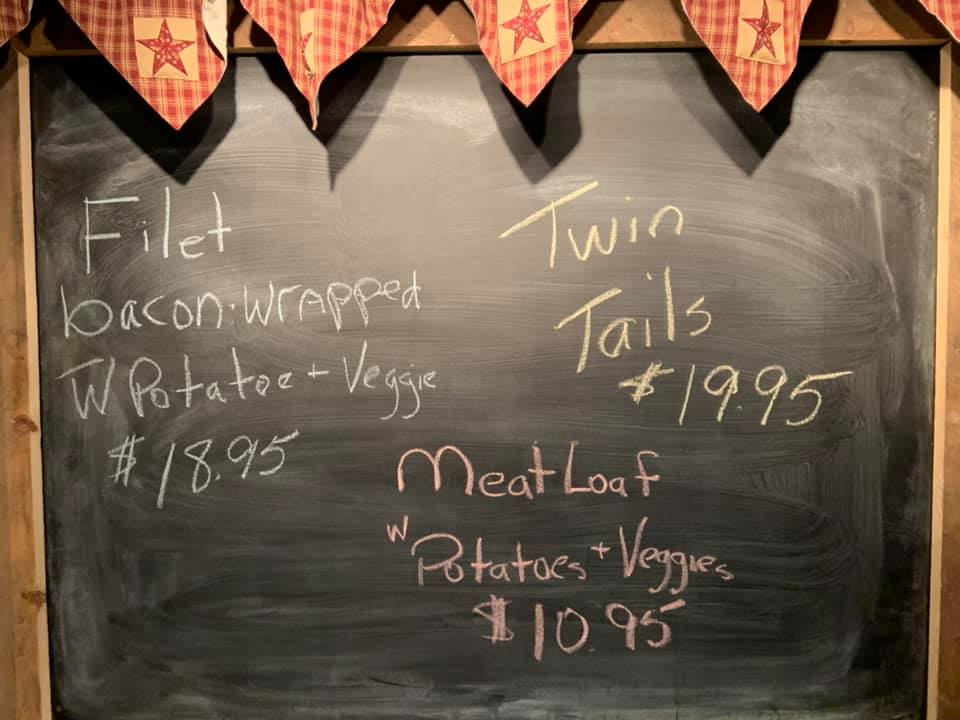 Filet
bacon-wrapped
W Potatoe + Veggie
$18.95
Twin
Tails
$19.95
MeatLoaf
w Potatoes + Veggies
$10.95